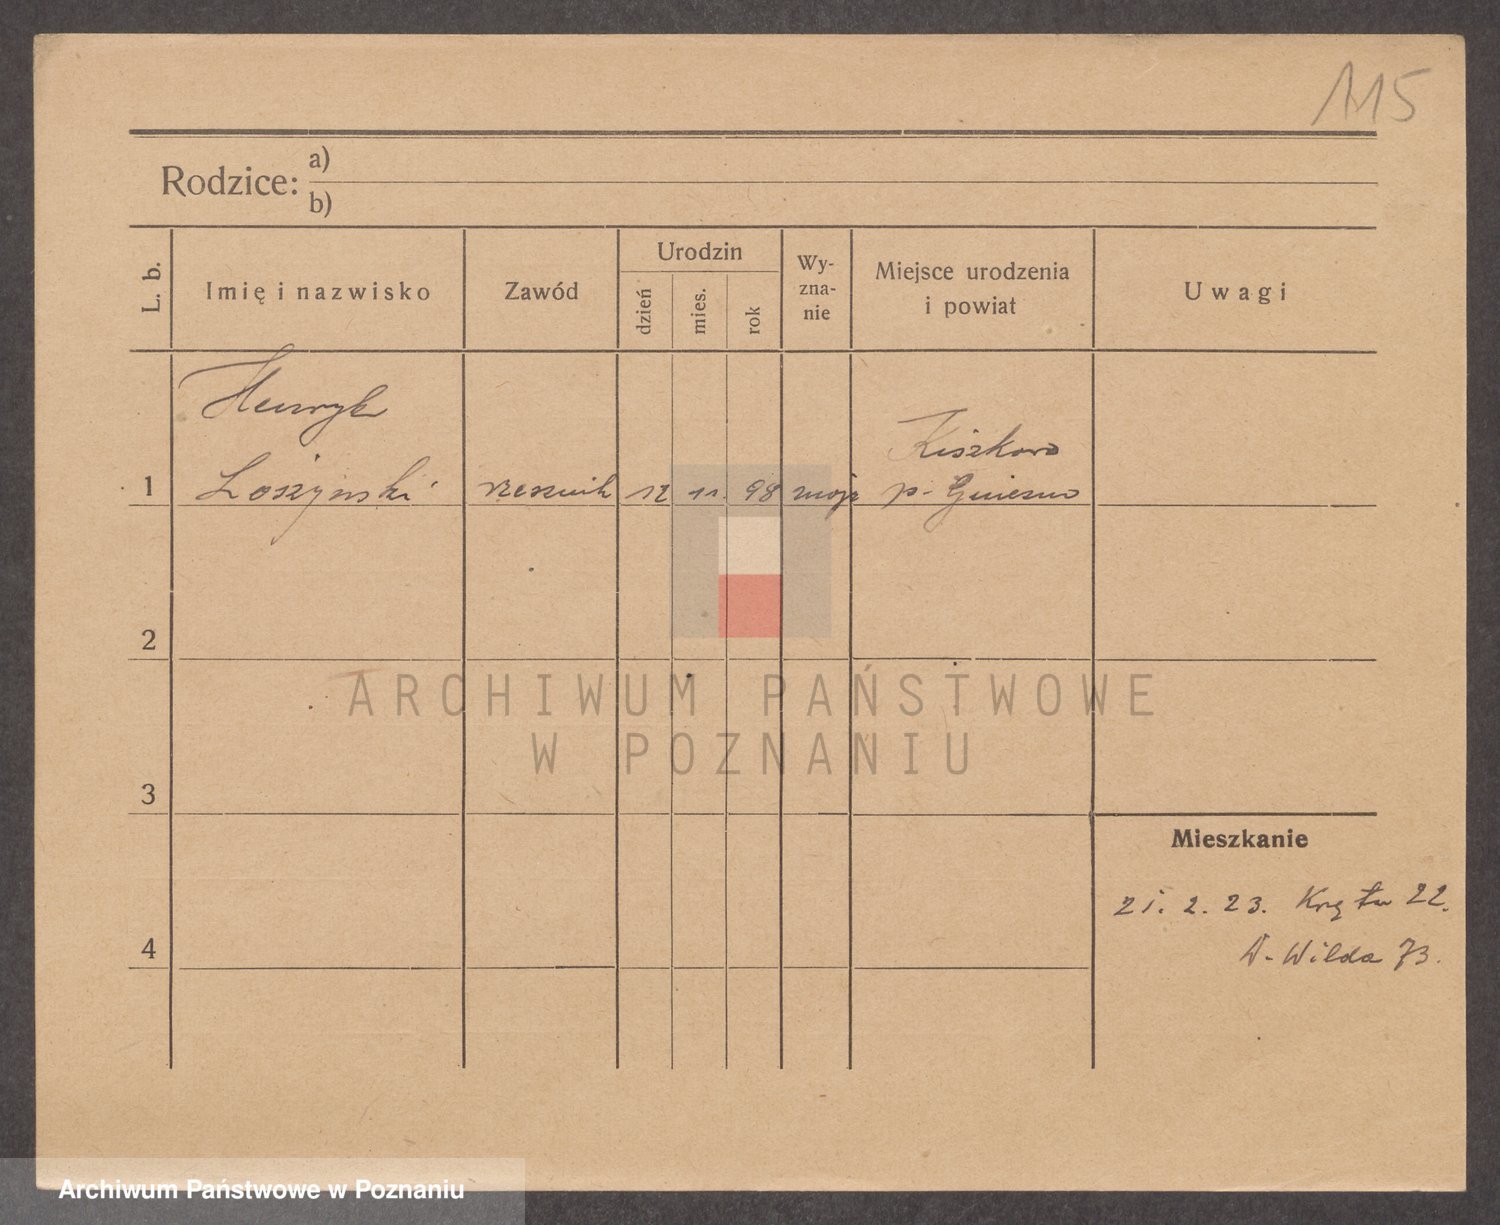 115
Rodzice: a)
b)
L. b.
Imię i nazwisko
Zawód
Urodzin
dzień
mies.
rok
Wy-
zna-
nie
Miejsce urodzenia
i powiat
Uwagi
1
Henryk
Łoszyński
rzeźnik
12
11.
98
mojż
Kiszkowo
p. Gniezno
2
3
4
Mieszkanie
21. 2. 23. Kręta 22.
Wilda 73.
ARCHIWUM PAŃSTWOWE
W POZNANIU
Archiwum Państwowe w Poznaniu